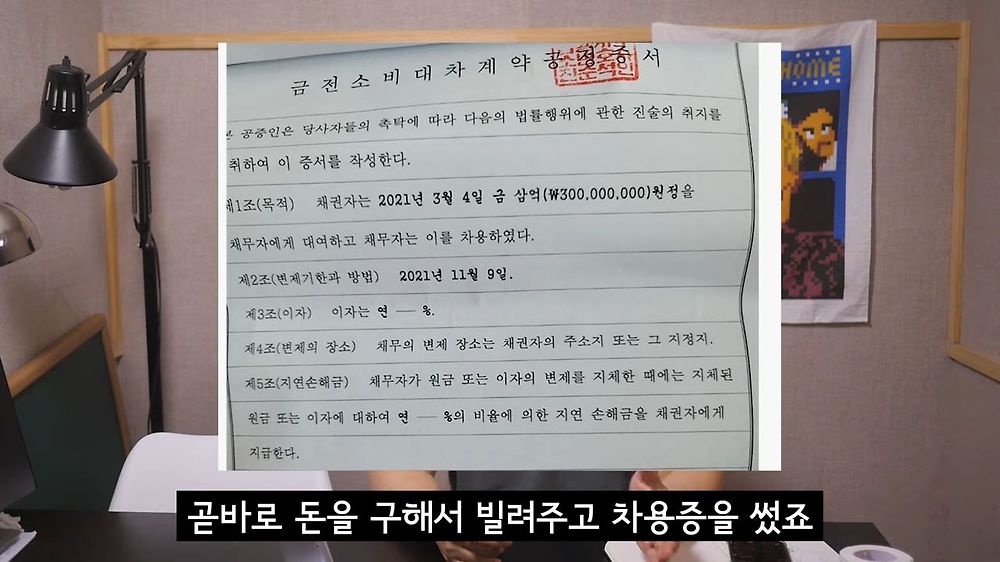 금전소비대차계약공정증서
본 공증인은 당사자들의 촉탁에 따라 다음의 법률행위에 관한 진술의 취지를
취하여 이 증서를 작성한다.
제1조(목적) 채권자는 2021년 3월 4일 금 삼억(₩300,000,000)원정을
채무자에게 대여하고 채무자는 이를 차용하였다.
제2조(변제기한과 방법) 2021년 11월 9일.
제3조(이자) 이자는 연 — %.
제4조(변제의 장소) 채무의 변제 장소는 채권자의 주소지 또는 그 지정지.
제5조(지연손해금) 채무자가 원금 또는 이자의 변제를 지체한 때에는 지체된
원금 또는 이자에 대하여 연 — %의 비율에 의한 지연 손해금을 채권자에게
지급한다.
HOME
곧바로 돈을 구해서 빌려주고 차용증을 썼죠